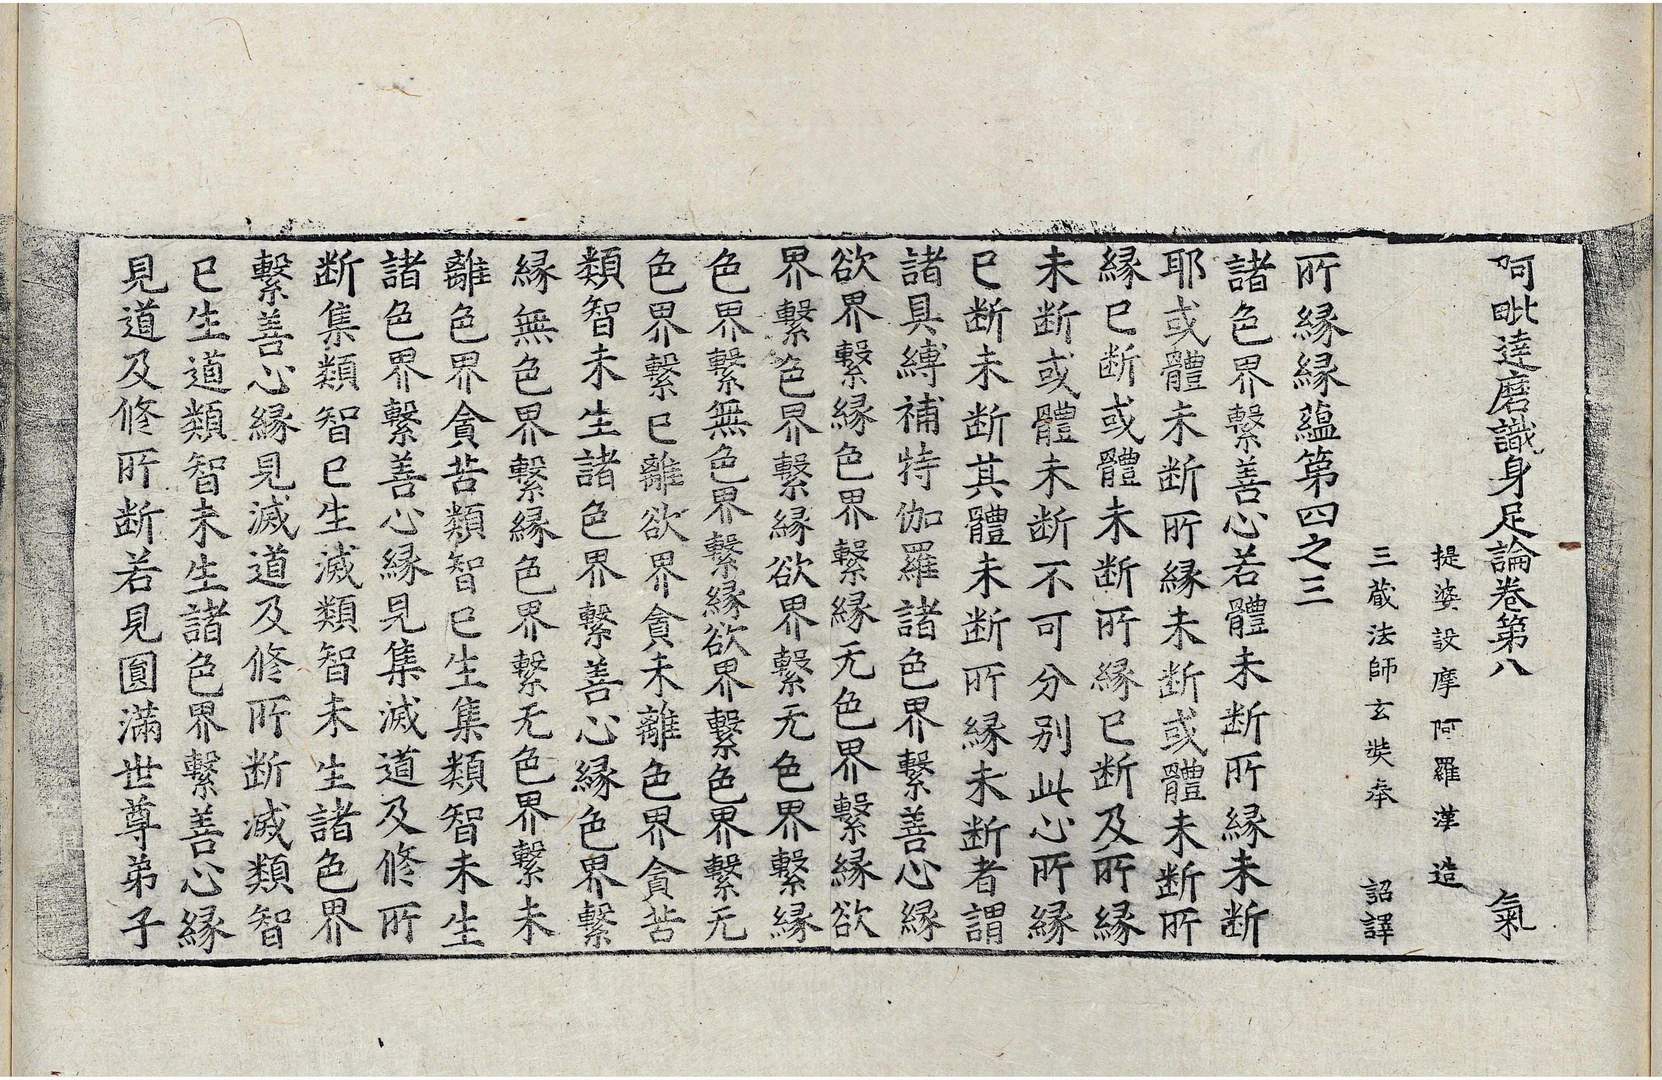 阿毗達磨識身足論卷第八　氣
提婆設摩阿羅漢　造
三藏法師玄奘奉　詔譯
所緣緣蘊第四之三
諸色界繫善心若體未斷所緣未斷
耶或體未斷所緣未斷或體未斷所
緣已斷或體未斷所緣已斷及所緣
未斷或體未斷不可分別此心所緣
已斷未斷其體未斷所緣未斷者謂
諸具縛補特伽羅諸色界繫善心緣
欲界繫緣色界繫緣无色界繫緣欲
界繫色界繫緣欲界繫无色界繫緣
色界繫無色界繫緣欲界繫色界繫无
色界繫已離欲界貪未離色界貪苦
類智未生諸色界繫善心緣色界繫
緣無色界繫緣色界繫无色界繫未
離色界貪苦類智已生集類智未生
諸色界繫善心緣見集滅道及修所
断集類智已生滅類智未生諸色界
繫善心緣見滅道及修所断滅類智
已生道類智未生諸色界繫善心緣
見道及修所断若見圓滿世尊弟子